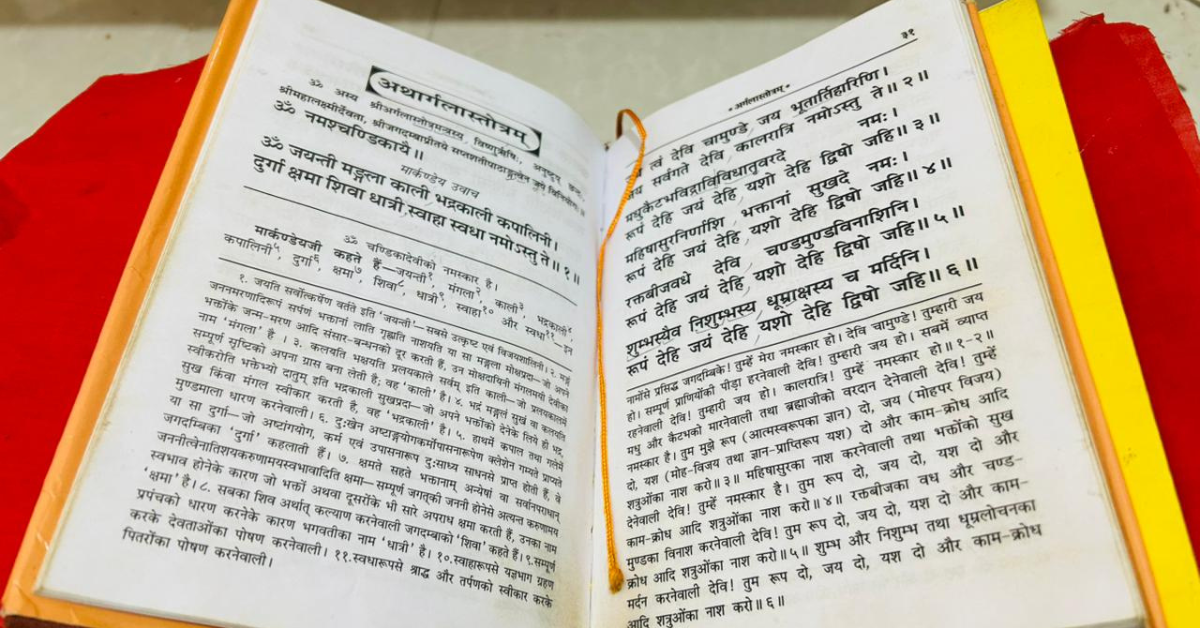 अथार्गलास्तोत्रम्
ॐ अस्य श्रीअर्गलास्तोत्रमन्त्रस्य विष्णुर्ऋषिः, अनुष्टुप् छन्दः,
श्रीमहालक्ष्मीर्देवता, श्रीजगदम्बाप्रीतये सप्तशतीपाठाङ्गत्वेन जपे विनियोगः॥
ॐ नमश्चण्डिकायै॥
मार्कण्डेय उवाच
ॐ जयन्ती मङ्गला काली भद्रकाली कपालिनी।
दुर्गा क्षमा शिवा धात्री स्वाहा स्वधा नमोऽस्तु ते॥१॥
ॐ चण्डिकादेवीको नमस्कार है।
मार्कण्डेयजी कहते हैं—जयन्ती१, मंगला२, काली३, भद्रकाली४,
कपालिनी५, दुर्गा६, क्षमा७, शिवा८, धात्री९, स्वाहा१० और स्वधा११—इन
१. जयति सर्वोत्कर्षेण वर्तते इति 'जयन्ती'—सबसे उत्कृष्ट एवं विजयशालिनी। २. मङ्गं
जननमरणादिरूपं सर्पणं भक्तानां लाति गृह्णाति नाशयति या सा मङ्गला मोक्षप्रदा—जो अपने
भक्तोंके जन्म-मरण आदि संसार-बन्धनको दूर करती हैं, उन मोक्षदायिनी मंगलमयी देवीका
नाम 'मंगला' है। ३. कलयति भक्षयति प्रलयकाले सर्वम् इति काली—जो प्रलयकालमें
सम्पूर्ण सृष्टिको अपना ग्रास बना लेती है; वह 'काली' है। ४. भद्रं मङ्गलं सुखं वा कलयति
स्वीकरोति भक्तेभ्यो दातुम् इति भद्रकाली सुखप्रदा—जो अपने भक्तोंको देनेके लिये ही भद्र,
सुख किंवा मंगल स्वीकार करती है, वह 'भद्रकाली' है। ५. हाथमें कपाल तथा गलेमें
मुण्डमाला धारण करनेवाली। ६. दुःखेन अष्टाङ्गयोगकर्मोपासनारूपेण क्लेशेन गम्यते प्राप्यते
या सा दुर्गा—जो अष्टांगयोग, कर्म एवं उपासनारूप दुःसाध्य साधनसे प्राप्त होती हैं, वे
जगदम्बिका 'दुर्गा' कहलाती हैं। ७. क्षमते सहते भक्तानाम् अन्येषां वा सर्वानपराधान्
जननीत्वेनातिशयकरुणामयस्वभावादिति क्षमा—सम्पूर्ण जगत्‌की जननी होनेसे अत्यन्त करुणामय
स्वभाव होनेके कारण जो भक्तों अथवा दूसरोंके भी सारे अपराध क्षमा करती हैं, उनका नाम
'क्षमा' है। ८. सबका शिव अर्थात् कल्याण करनेवाली जगदम्बाको 'शिवा' कहते हैं। ९.सम्पूर्ण
प्रपंचको धारण करनेके कारण भगवतीका नाम 'धात्री' है। १०.स्वाहारूपसे यज्ञभाग ग्रहण
करके देवताओंका पोषण करनेवाली। ११.स्वधारूपसे श्राद्ध और तर्पणको स्वीकार करके
पितरोंका पोषण करनेवाली।
३१
* अर्गलास्तोत्रम् *
त्वं देवि चामुण्डे जय भूतार्तिहारिणि।
जय सर्वगते देवि कालरात्रि नमोऽस्तु ते॥२॥
मधुकैटभविद्राविविधातृवरदे नमः।
रूपं देहि जयं देहि यशो देहि द्विषो जहि॥३॥
महिषासुरनिर्णाशि भक्तानां सुखदे नमः।
रूपं देहि जयं देहि यशो देहि द्विषो जहि॥४॥
रक्तबीजवधे देवि चण्डमुण्डविनाशिनि।
रूपं देहि जयं देहि यशो देहि द्विषो जहि॥५॥
शुम्भस्यैव निशुम्भस्य धूम्राक्षस्य च मर्दिनि।
रूपं देहि जयं देहि यशो देहि द्विषो जहि॥६॥
नामोंसे प्रसिद्ध जगदम्बिके! तुम्हें मेरा नमस्कार हो। देवि चामुण्डे! तुम्हारी जय
हो। सम्पूर्ण प्राणियोंकी पीड़ा हरनेवाली देवि! तुम्हारी जय हो। सबमें व्याप्त
रहनेवाली देवि! तुम्हारी जय हो। कालरात्रि! तुम्हें नमस्कार हो॥१-२॥
मधु और कैटभको मारनेवाली तथा ब्रह्माजीको वरदान देनेवाली देवि! तुम्हें
नमस्कार है। तुम मुझे रूप (आत्मस्वरूपका ज्ञान) दो, जय (मोहपर विजय)
दो, यश (मोह-विजय तथा ज्ञान-प्राप्तिरूप यश) दो और काम-क्रोध आदि
शत्रुओंका नाश करो॥३॥ महिषासुरका नाश करनेवाली तथा भक्तोंको सुख
देनेवाली देवि! तुम्हें नमस्कार है। तुम रूप दो, जय दो, यश दो और
काम-क्रोध आदि शत्रुओंका नाश करो॥४॥ रक्तबीजका वध और चण्ड-
मुण्डका विनाश करनेवाली देवि! तुम रूप दो, जय दो, यश दो और काम-
क्रोध आदि शत्रुओंका नाश करो॥५॥ शुम्भ और निशुम्भ तथा धूम्रलोचनका
मर्दन करनेवाली देवि! तुम रूप दो, जय दो, यश दो और काम-क्रोध
आदि शत्रुओंका नाश करो॥६॥